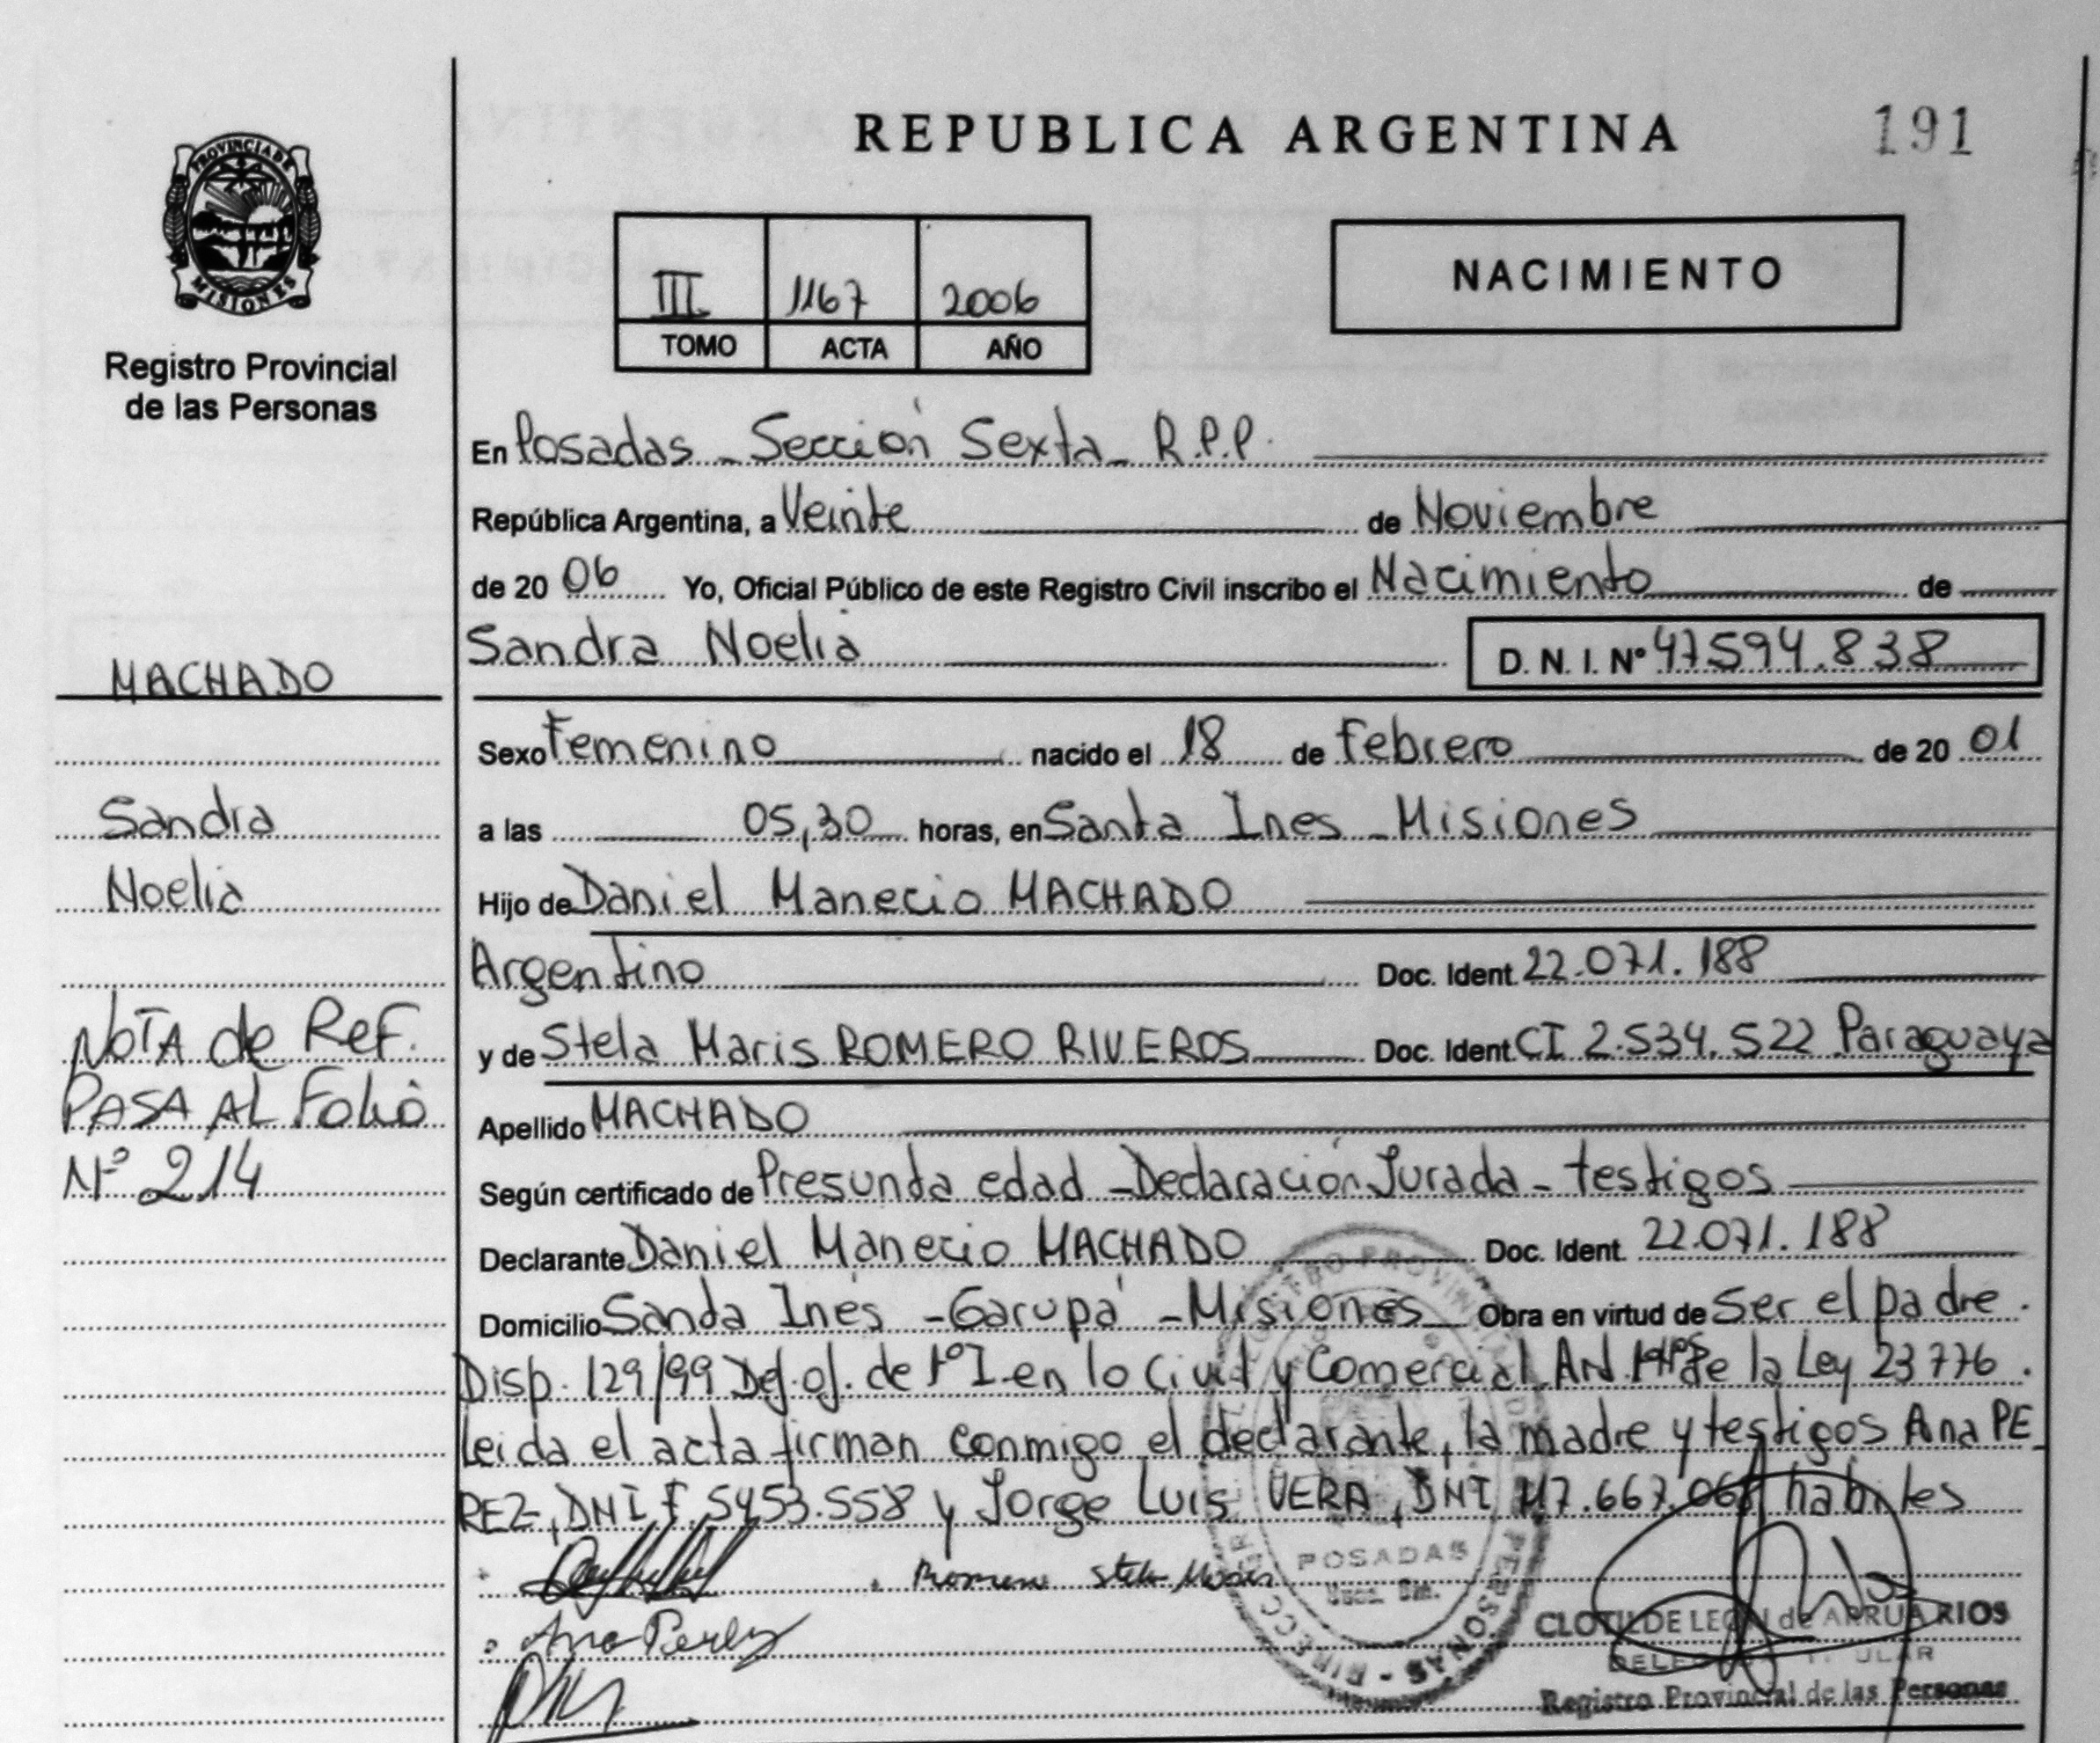 REPUBLICA ARGENTINA
191
PROVINCIA DE MISIONES
Registro Provincial
de las Personas
III 1167 2006
TOMO ACTA AÑO
NACIMIENTO
En Posadas - Sección Sexta - R.P.P.
República Argentina, a Veinte de Noviembre
de 20 06 Yo, Oficial Público de este Registro Civil inscribo el Nacimiento de
Sandra Noelia D. N. I. Nº 47594.838
MACHADO
Sexo Femenino nacido el 18 de Febrero de 20 01
Sandra
a las 05,30 horas, en Santa Ines - Misiones
Noelia
Hijo de Daniel Manecio MACHADO
Argentino Doc. Ident. 22.071.188
NOTA de Ref.
y de Stela Maris ROMERO RIVEROS Doc. Ident. CI 2.534.522 Paraguaya
PASA AL Folio
Apellido MACHADO
Nº 214
Según certificado de Presunta edad - Declaración Jurada - testigos
Declarante Daniel Manecio MACHADO Doc. Ident. 22.071.188
Domicilio Sanda Inés - Garupá - Misiones Obra en virtud de Ser el padre.
Disp. 129/99 Def. of. de 1º I en lo Civil y Comercial de la Ley 23776.
Leida el acta firman conmigo el declarante, la madre y testigos Ana PE
REZ, DNI F. 5453.558 y Jorge Luis VERA, DNI habiles
Romero Stela Maris
Ana Perez
POSADAS
CLOTILDE LEON de ARRUA RIOS
Registro Provincial de las Personas